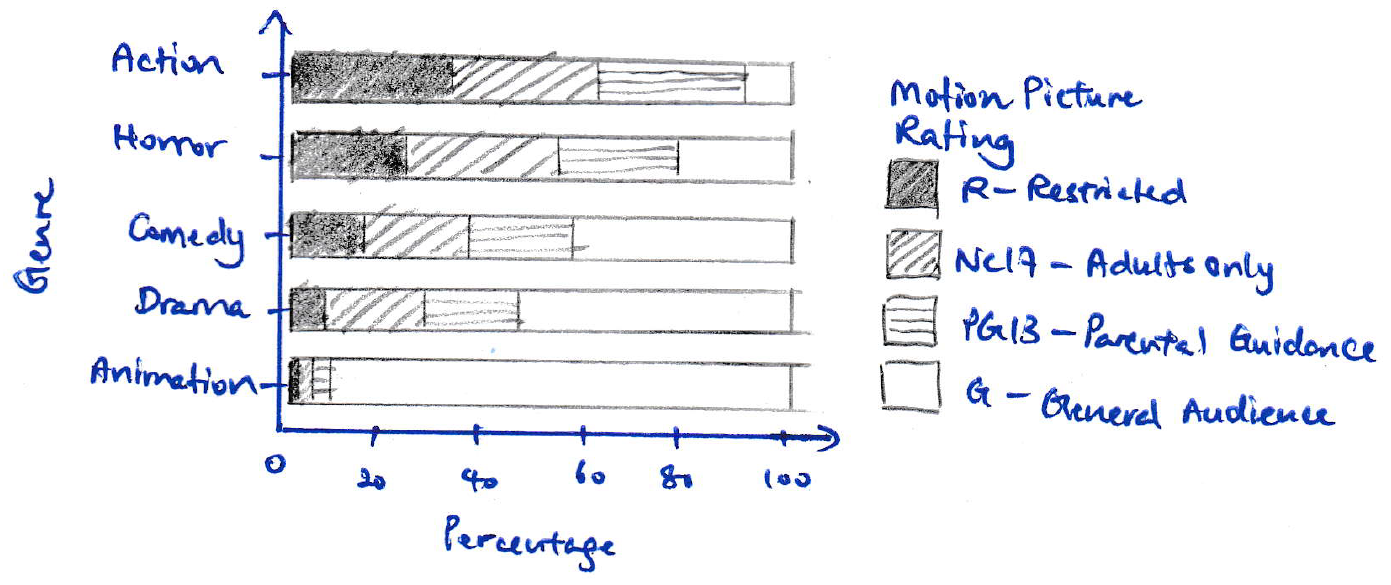 Action
Horror
Comedy
Drama
Animation
Genre
0 20 40 60 80 100
Percentage
Motion Picture
Rating
R - Restricted
NC17 - Adults only
PG13 - Parental Guidance
G - General Audience